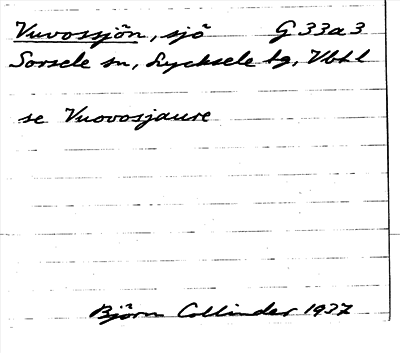 Vuvossjön, sjö G 33a3
Sorsele sn, Lycksele tg, Vbtl
se Vuovosjaure
Björn Collinder 1937